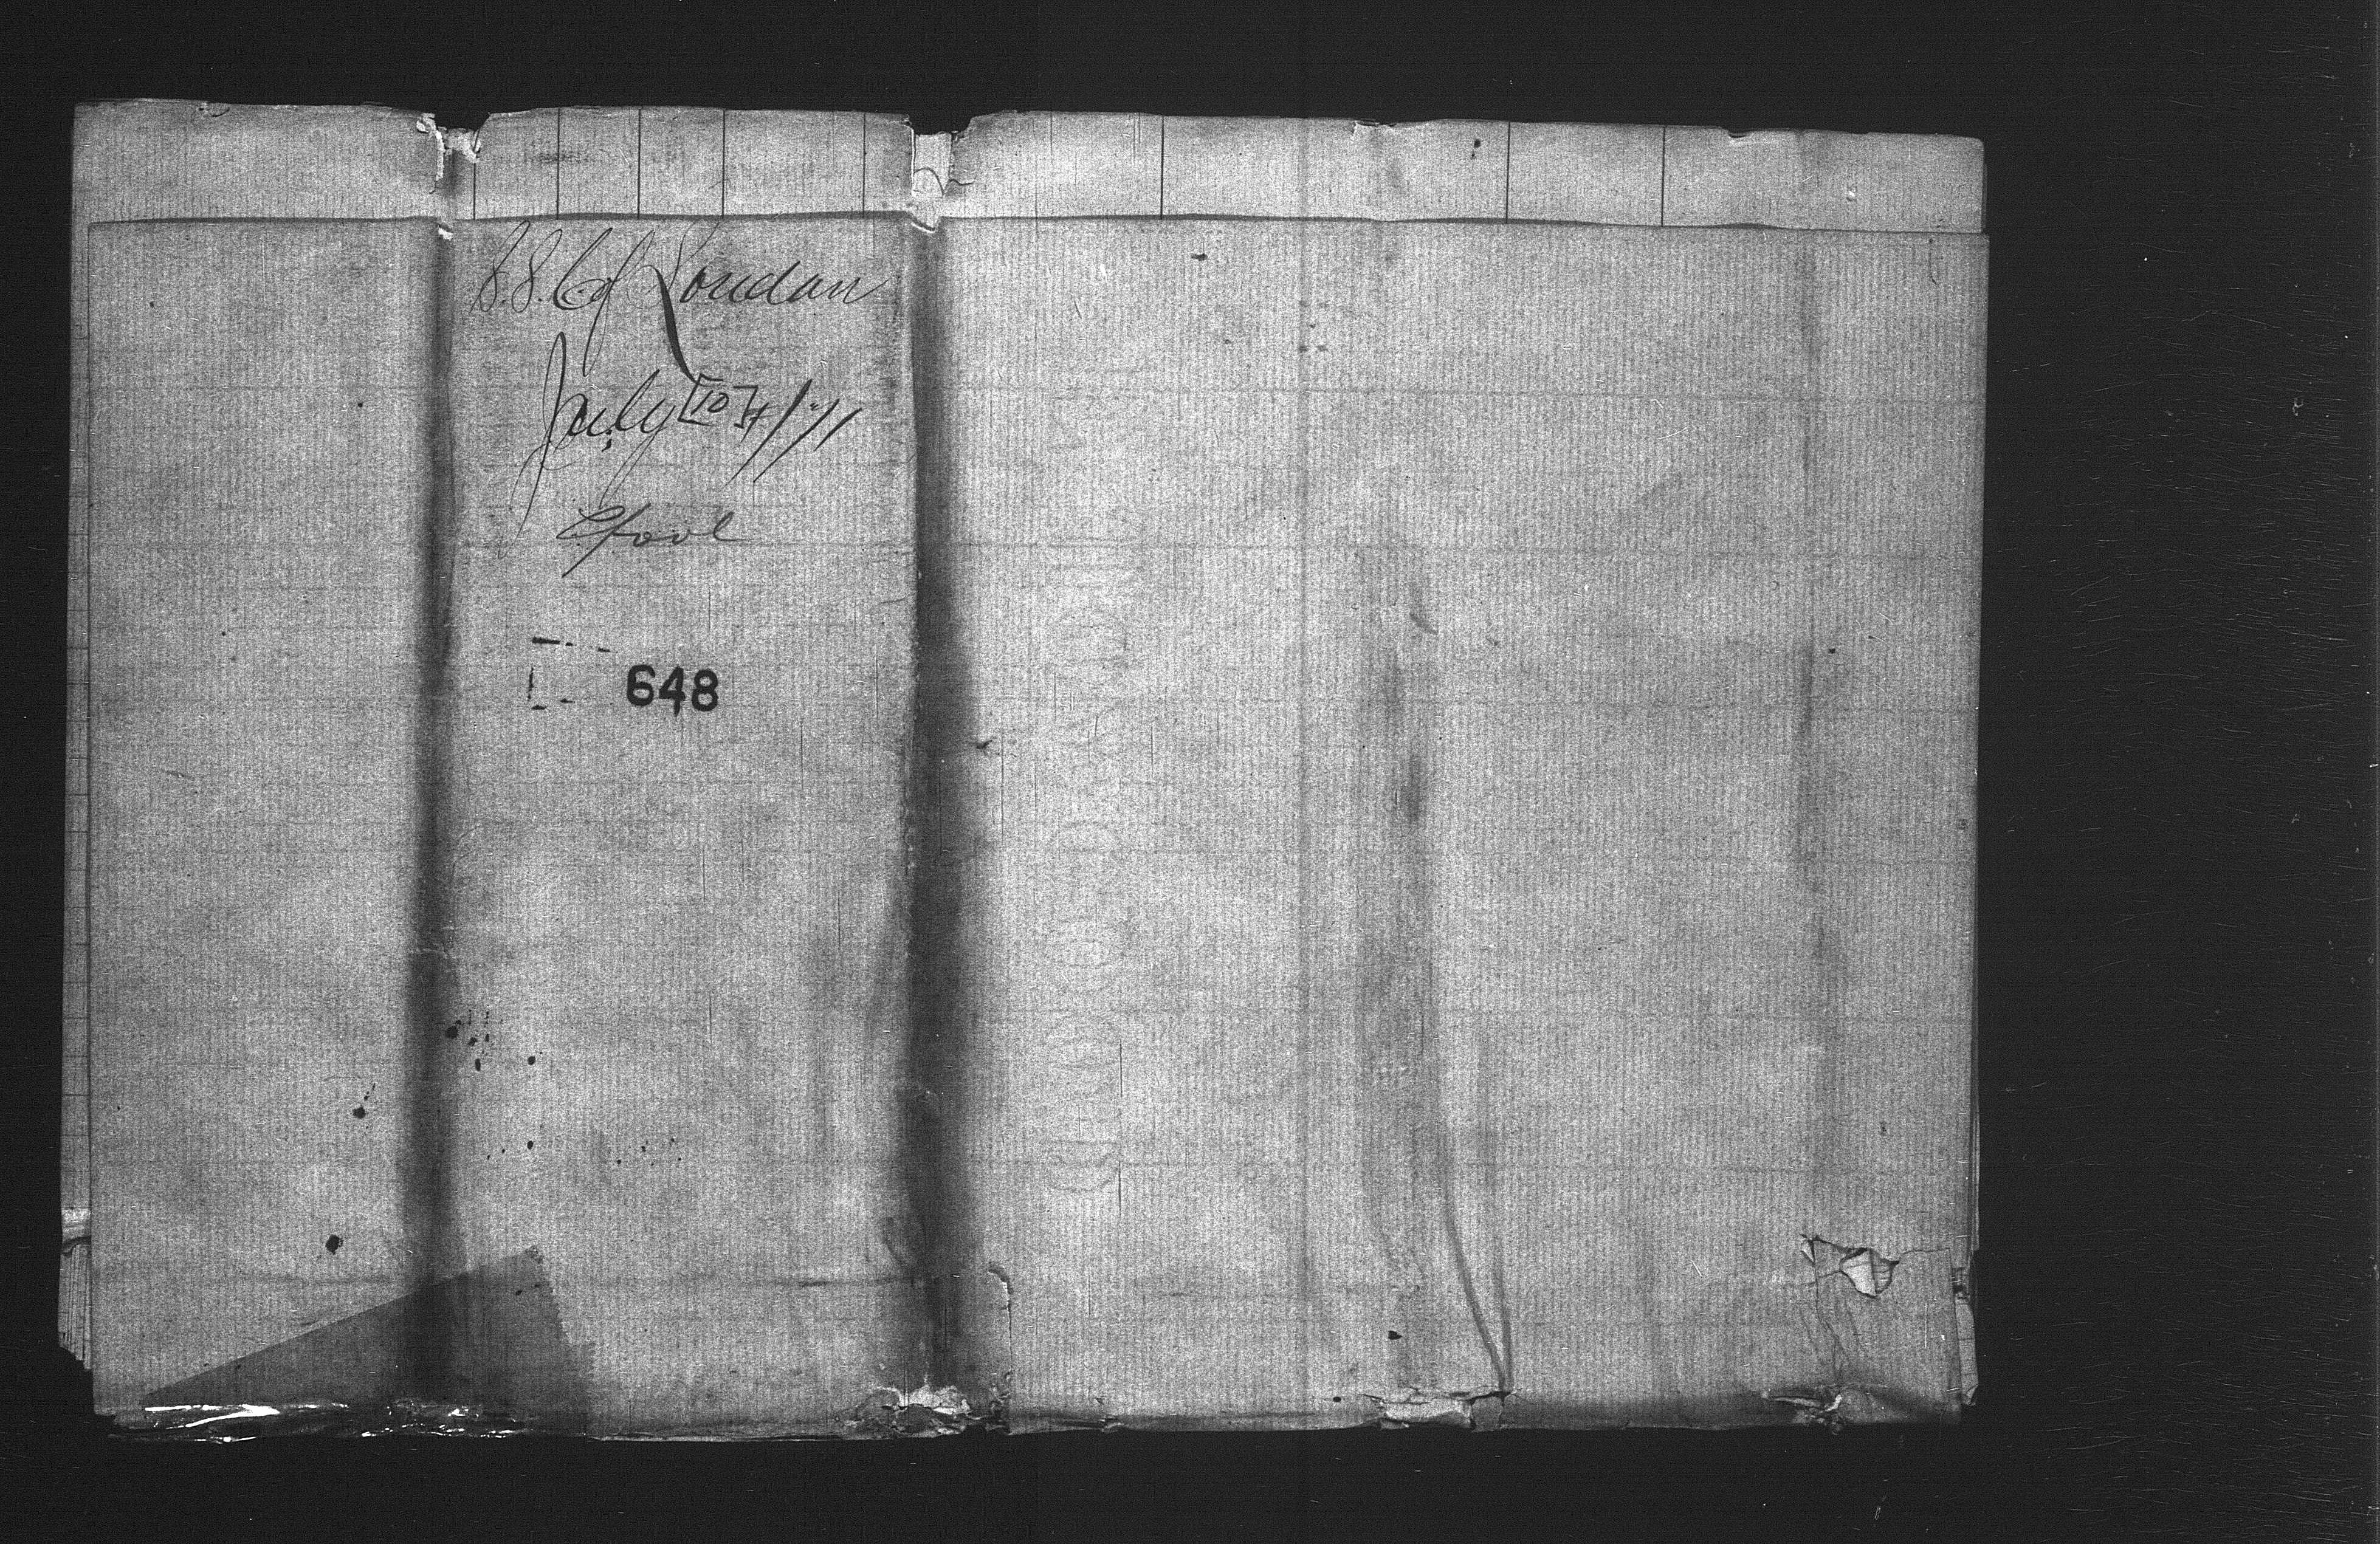 S.S. C of London
July [10]
L'pool
648